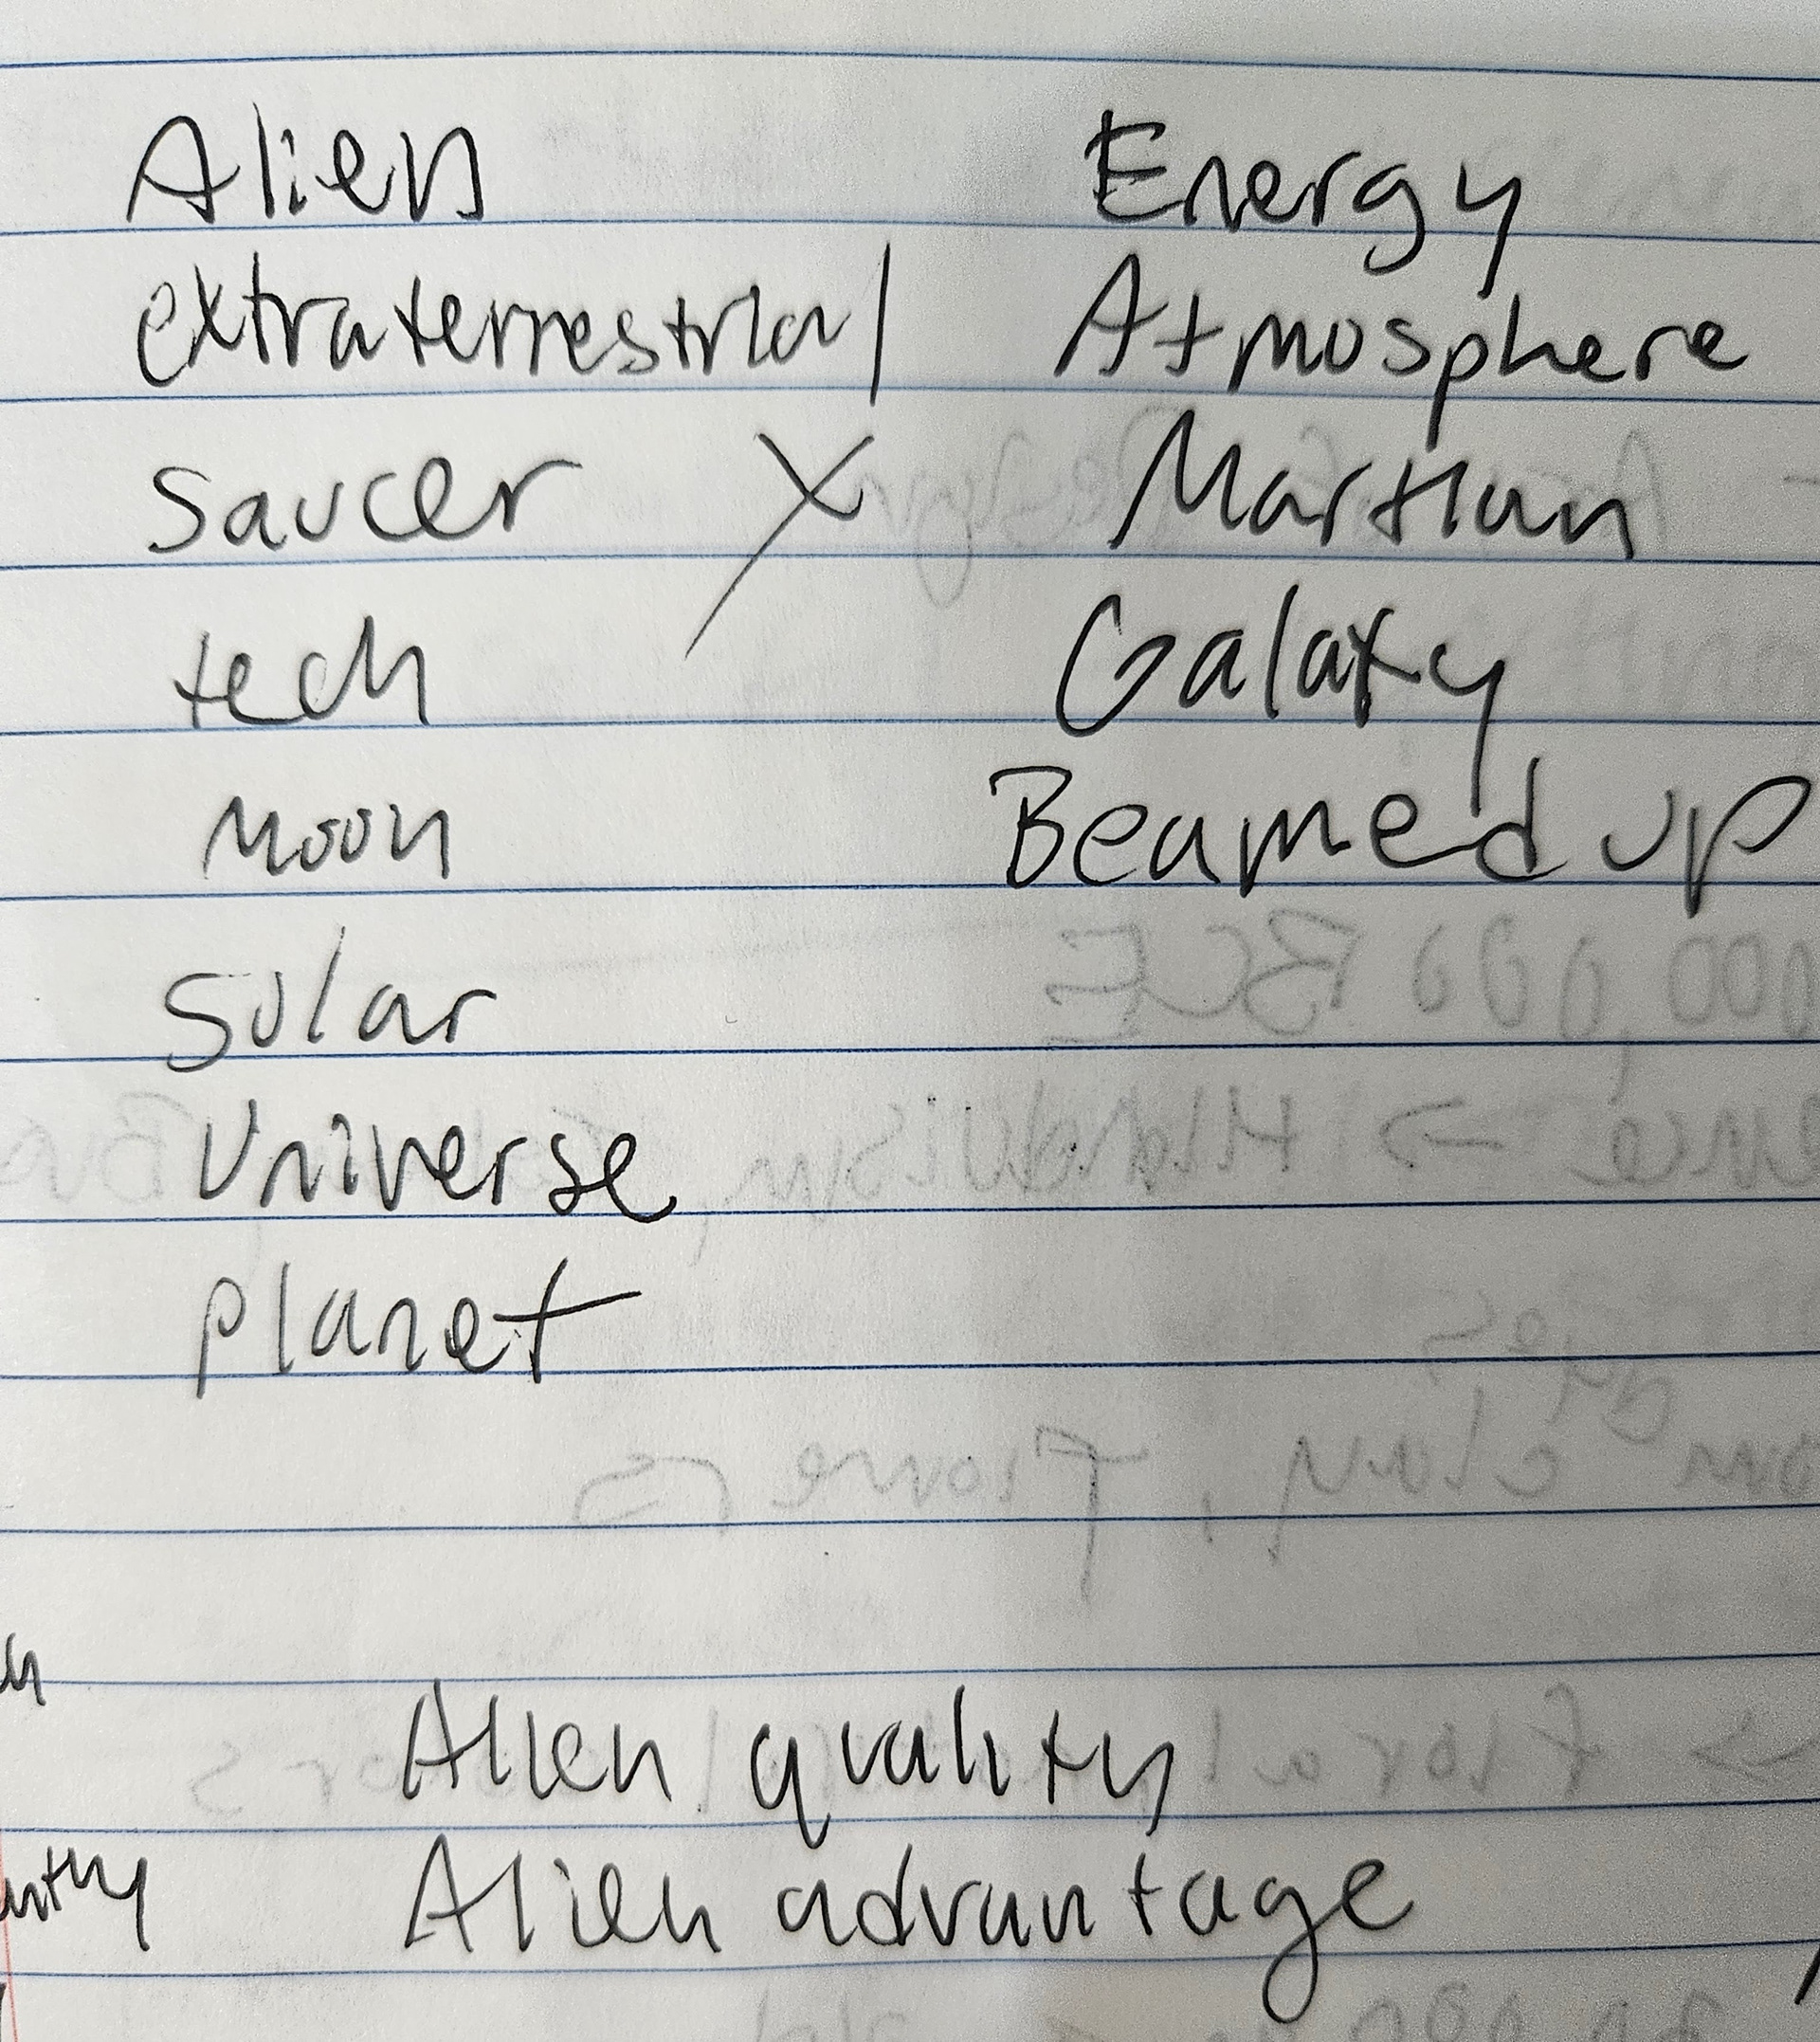 Alien
extraterrestrial
saucer X
tech
Moon
Solar
Universe
planet
Energy
Atmosphere
Martian
Galaxy
Beamed up
Alien quality
Alien advantage